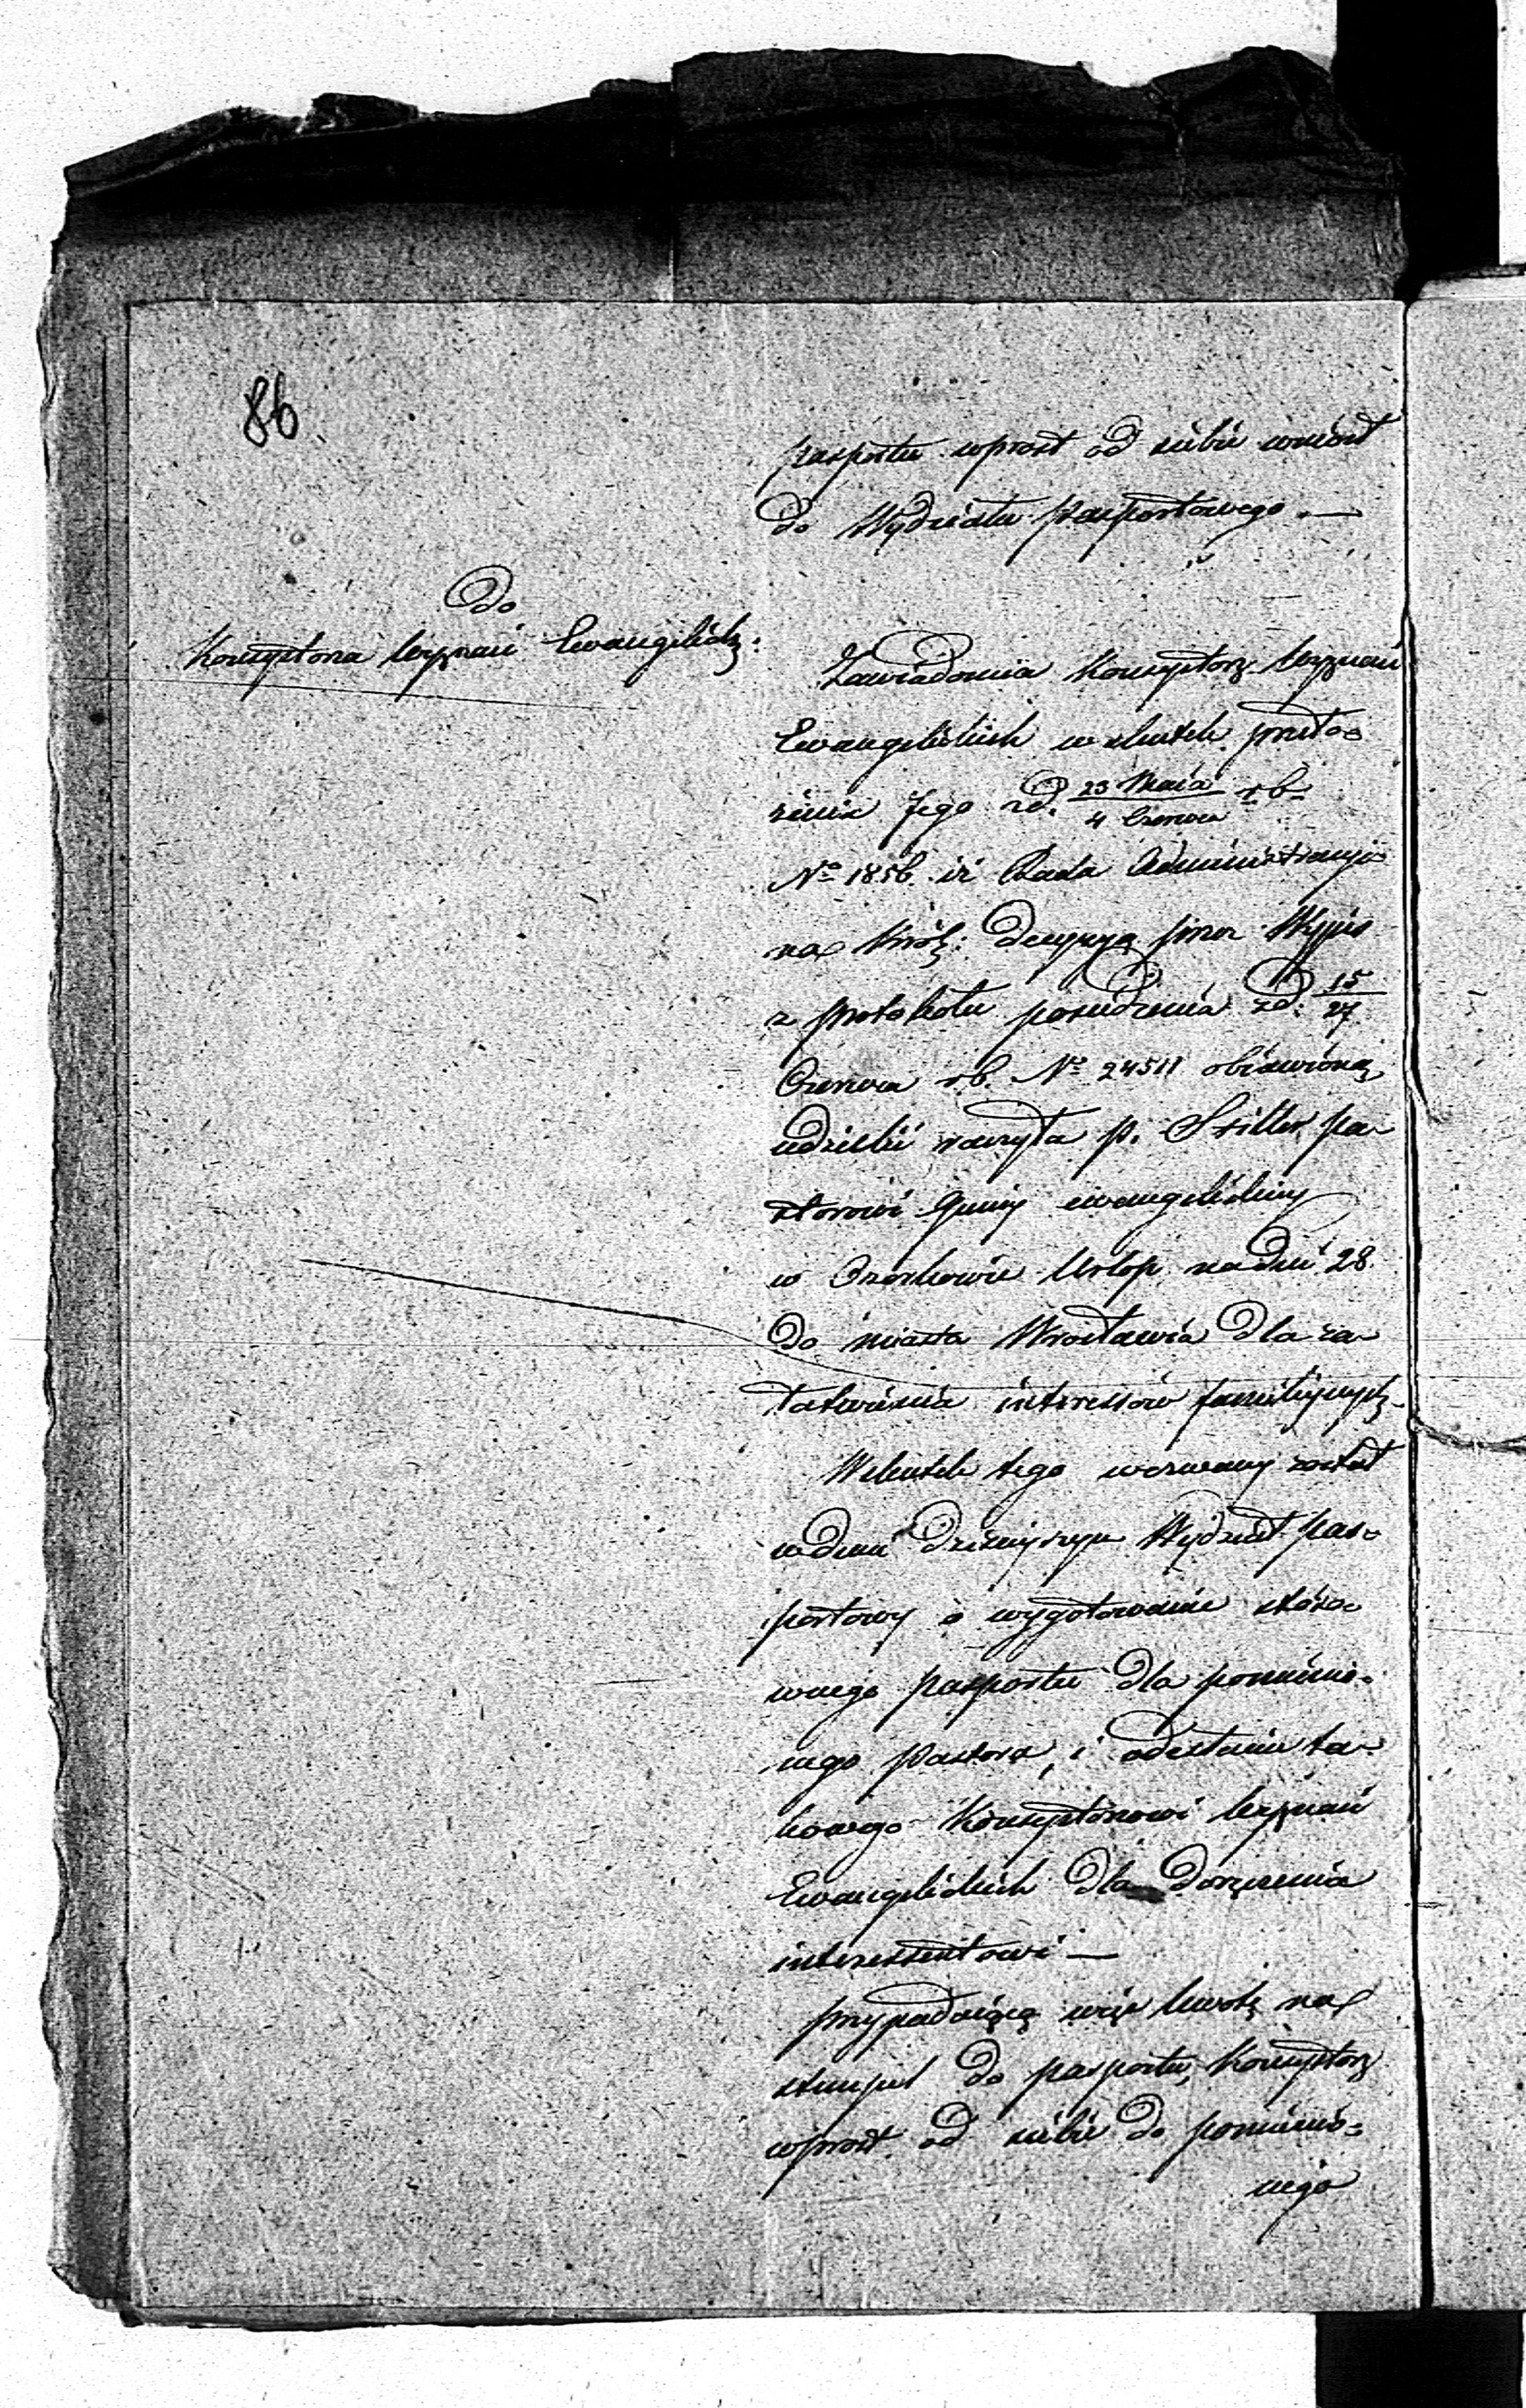 86
paszportu wprost od siebie wniósł
do Wydziału paszportowego. —
Do
Konsystorza Wyznań Ewangelick:
Zawiadomia Konsystorz Wyznań
Ewangelickich w skutek przeło-
żenia Jego z d. 23 Maia / 4 Czerwca r b
No 1856. iż Rada Administracyj-
na Król: decyzyą przez Wypis
z protokołu posiedzenia z d. 15/27
Czerwca r b. No 24511 obiawioną,
udzielić raczyła p. Stiller pa-
storowi Gminy ewangelickiey
w Ozorkowie Urlop na dni 28.
do miasta Wrocławia dla za-
łatwienia interessów familijnych.
W skutek tego wezwany został
w dniu dzisiejszym Wydział pas-
portowy o wygotowanie stoso-
wnego paszportu dla pomienio-
nego Pastora, i odesłanie ta-
kowego Konsystorzowi Wyznań
Ewangelickich dla doręczenia
interessentowi —
przypadaiącą więc kwotę na
stempel do paszportu, Konsystorz
wprost od siebie do pomienio-
nego